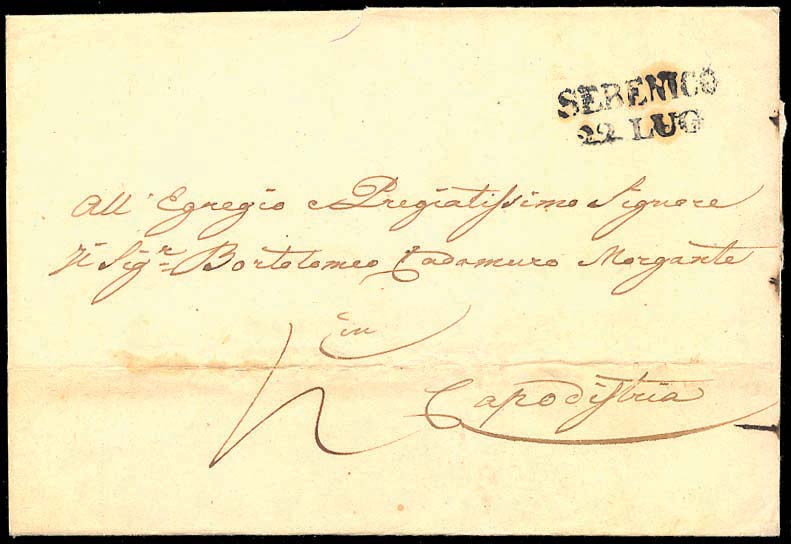 SEBENICO
22 LUG
All' Egregio e Pregiatissimo Signore
Il Sigr Bortolomeo Cadamuro Morgante
in
Capodistria